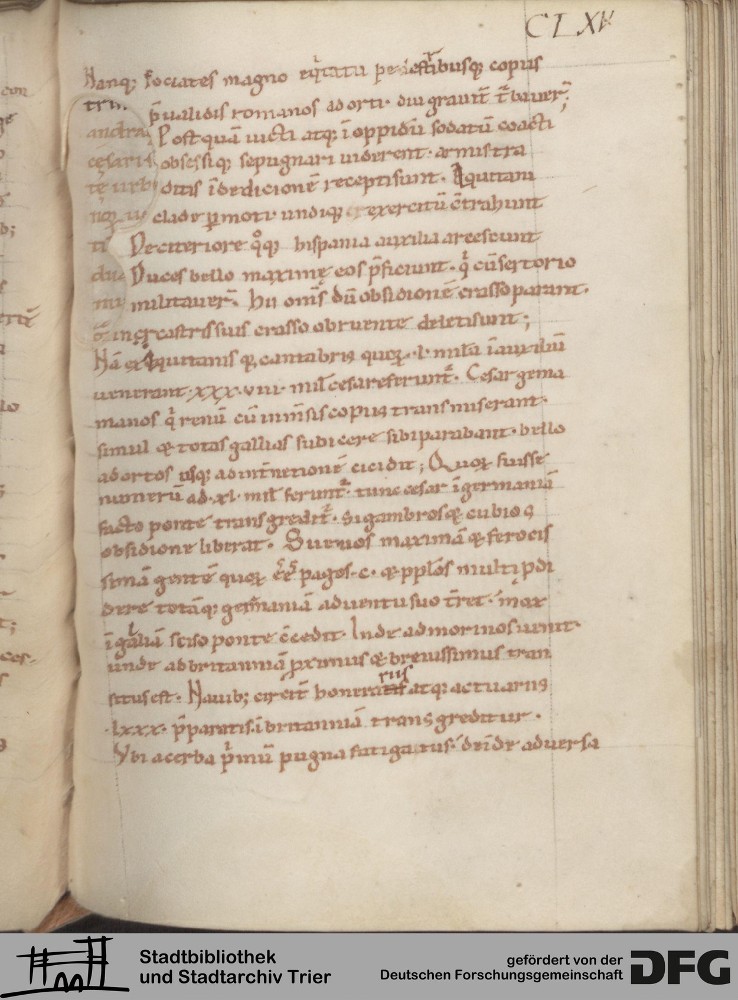 CLXV
Nanq; sociates magno eq̄tatu pedestribusq; copiis
p̄validis romanos adorti. diu gravit̄ t̄baver̄;
Postquā victi atq; ī oppidū sodatū coacti
obsessiq; sepugnari viderent. armis tra
ditis ī dedicionē recepti sunt. Aquitani
clade p̄moti. undiq; exercitū c̄trahunt
De citeriore q̊q; hispania auxilia arcescunt
Duces bello maximę eos p̄ficiunt. q̇ cū sertorio
militaver̄. hii om̄s dū obsidionē crasso parant.
castris suis crasso obruente deleti sunt;
Nā ex Aquitanis & cantabris quoꝝ .l. milia ī auxiliū
venerant. xxx. viii. mil̄ cesa referunt̄. Cesar germa
manos q̇ renū cū inm̄sis copiis transmiserant.
simul & totas gallias subicere sibi parabant. bello
adortos usq; ad int̄netionē cicidit; Quoꝝ fuisse
numerū ad .xl. mil̄ ferunt̄. tunc cesar ī germaniā
facto ponte transgredit̄. sigambrosq; & cubios
obsidione liberat. Suevos maximā & ferocis
simā gentē quoꝝ ēē pagos .c. & pp̄los multi p̄di
dere totāq; germaniā adventu suo t̄ret. mox
ī galliā sciso ponte c̄cedit. Inde ad morinos venit.
unde ad britanniā p̄ximus & brevissimus tran
situs est. Navib; circit̄ honerariis atq; actuariis
.lxxx. p̄paratis. ī britanniā transgreditur.
Ubi acerba p̄mū pugna fatigatus. deīde adversa
Stadtbibliothek
und Stadtarchiv Trier
gefördert von der
Deutschen Forschungsgemeinschaft
DFG